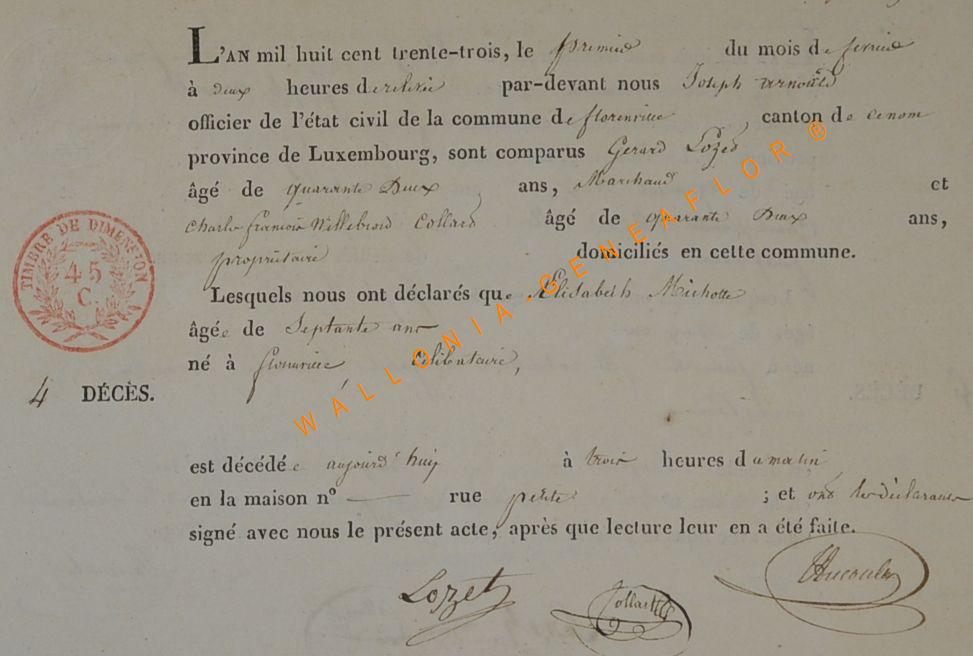 L'AN mil huit cent trente-trois, le premier du mois de fevrier
à deux heures de relevée par-devant nous Joseph
officier de l'état civil de la commune de florenville, canton de ce nom
province de Luxembourg, sont comparus Gerard Lozet
âgé de quarante Deux ans, Marchand et
Charles françois Willebrord Collard âgé de quarante Deux ans,
propriétaire domiciliés en cette commune.
Lesquels nous ont déclarés que Elisabeth Michotte
âgée de Septante ans
né à florenville Célibataire,
TIMBRE DE DIMENSION
45
C.
4 DÉCÈS.
est décédée aujourd'huy à trois heures du matin
en la maison nº — rue petite ; et ont les déclarans
signé avec nous le présent acte, après que lecture leur en a été faite.
Lozet Collard
WALLONIA-GENEAFLOR®